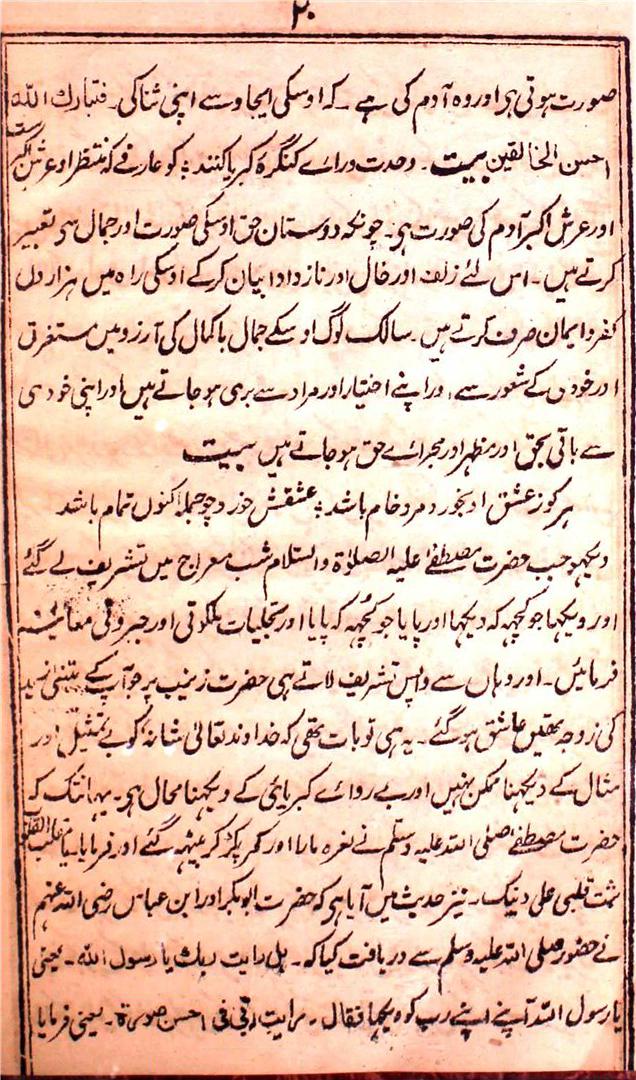 ۲۰
صورت ہوتی ہی اور وہ آدم کی ہے ۔ کہ اوسکی ایجاد سے اپنی ثنا کی ۔ فتبارك اللہ
احسن الخالقین بیت ۔ وحدت وراے کنگرۂ کبریا کنند ؛ کو عارفے کہ منتظر او عرش اکبر ست
اور عرش اکبر آدم کی صورت ہی ۔ چونکہ دوستان حق اوسکی صورت اور جمال ہی تعبیر
کرتے ہیں ۔ اس لئے زلف اور خال اور ناز و ادا بیان کرکے اوسکی راہ میں ہزار دل
کفر و ایمان صرف کرتے ہیں ۔ سالک لوگ اوسکے جمال باکمال کی آرزو میں مستغرق
اور خودی کے شعور سے ، ور اپنے اختیار اور مراد سے بری ہوجاتے ہیں اور اپنی خودی
سے باقی بحق اور مظہر اور مجراے حق ہوجاتے ہیں بیت
ہرکو ز عشق او بخورد مرد خام باشد ؛ عشقش خورد چو جملہ اکنوں تمام باشد
دیکہو جب حضرت مصطفےٰ علیہ الصلوٰۃ والسلام شب معراج میں تشریف لے گئے
اور دیکہا جو کچہہ کہ دیکہا اور پایا جو کچہہ کہ پایا اور تجلیات ملکوتی اور جبروتی معائنہ
فرمائیں ۔ اور وہاں سے واپس تشریف لاتے ہی حضرت زینب پر جو آپ کے متبنی زید
کی زوجہ تھیں عاشق ہوگئے ۔ یہ ہی تو بات تھی کہ خداوند تعالیٰ شانہ کو بے تمثیل اور
مثال کے دیکہنا ممکن نہیں اور بے رداے کبریائی کے دیکہنا محال ہی ۔ یہانتک کہ
حضرت مصطفےٰ صلی اللہ علیہ وسلم نے نعرہ مارا اور کمر پکڑ کر بیٹہہ گئے اور فرمایا یا مقلب القلوب
ثبت قلبی علی دینک ۔ نیز حدیث میں آیا ہی کہ حضرت ابوبکر اور ابن عباس رضی اللہ عنہم
نے حضور صلی اللہ علیہ وسلم سے دریافت کیا کہ ۔ ہل رایت ربك یا رسول اللہ ۔ یعنی
یا رسول اللہ آپنے اپنے رب کو دیکہا فقال ۔ رایت ربی فی احسن صورۃ ۔ یعنی فرمایا